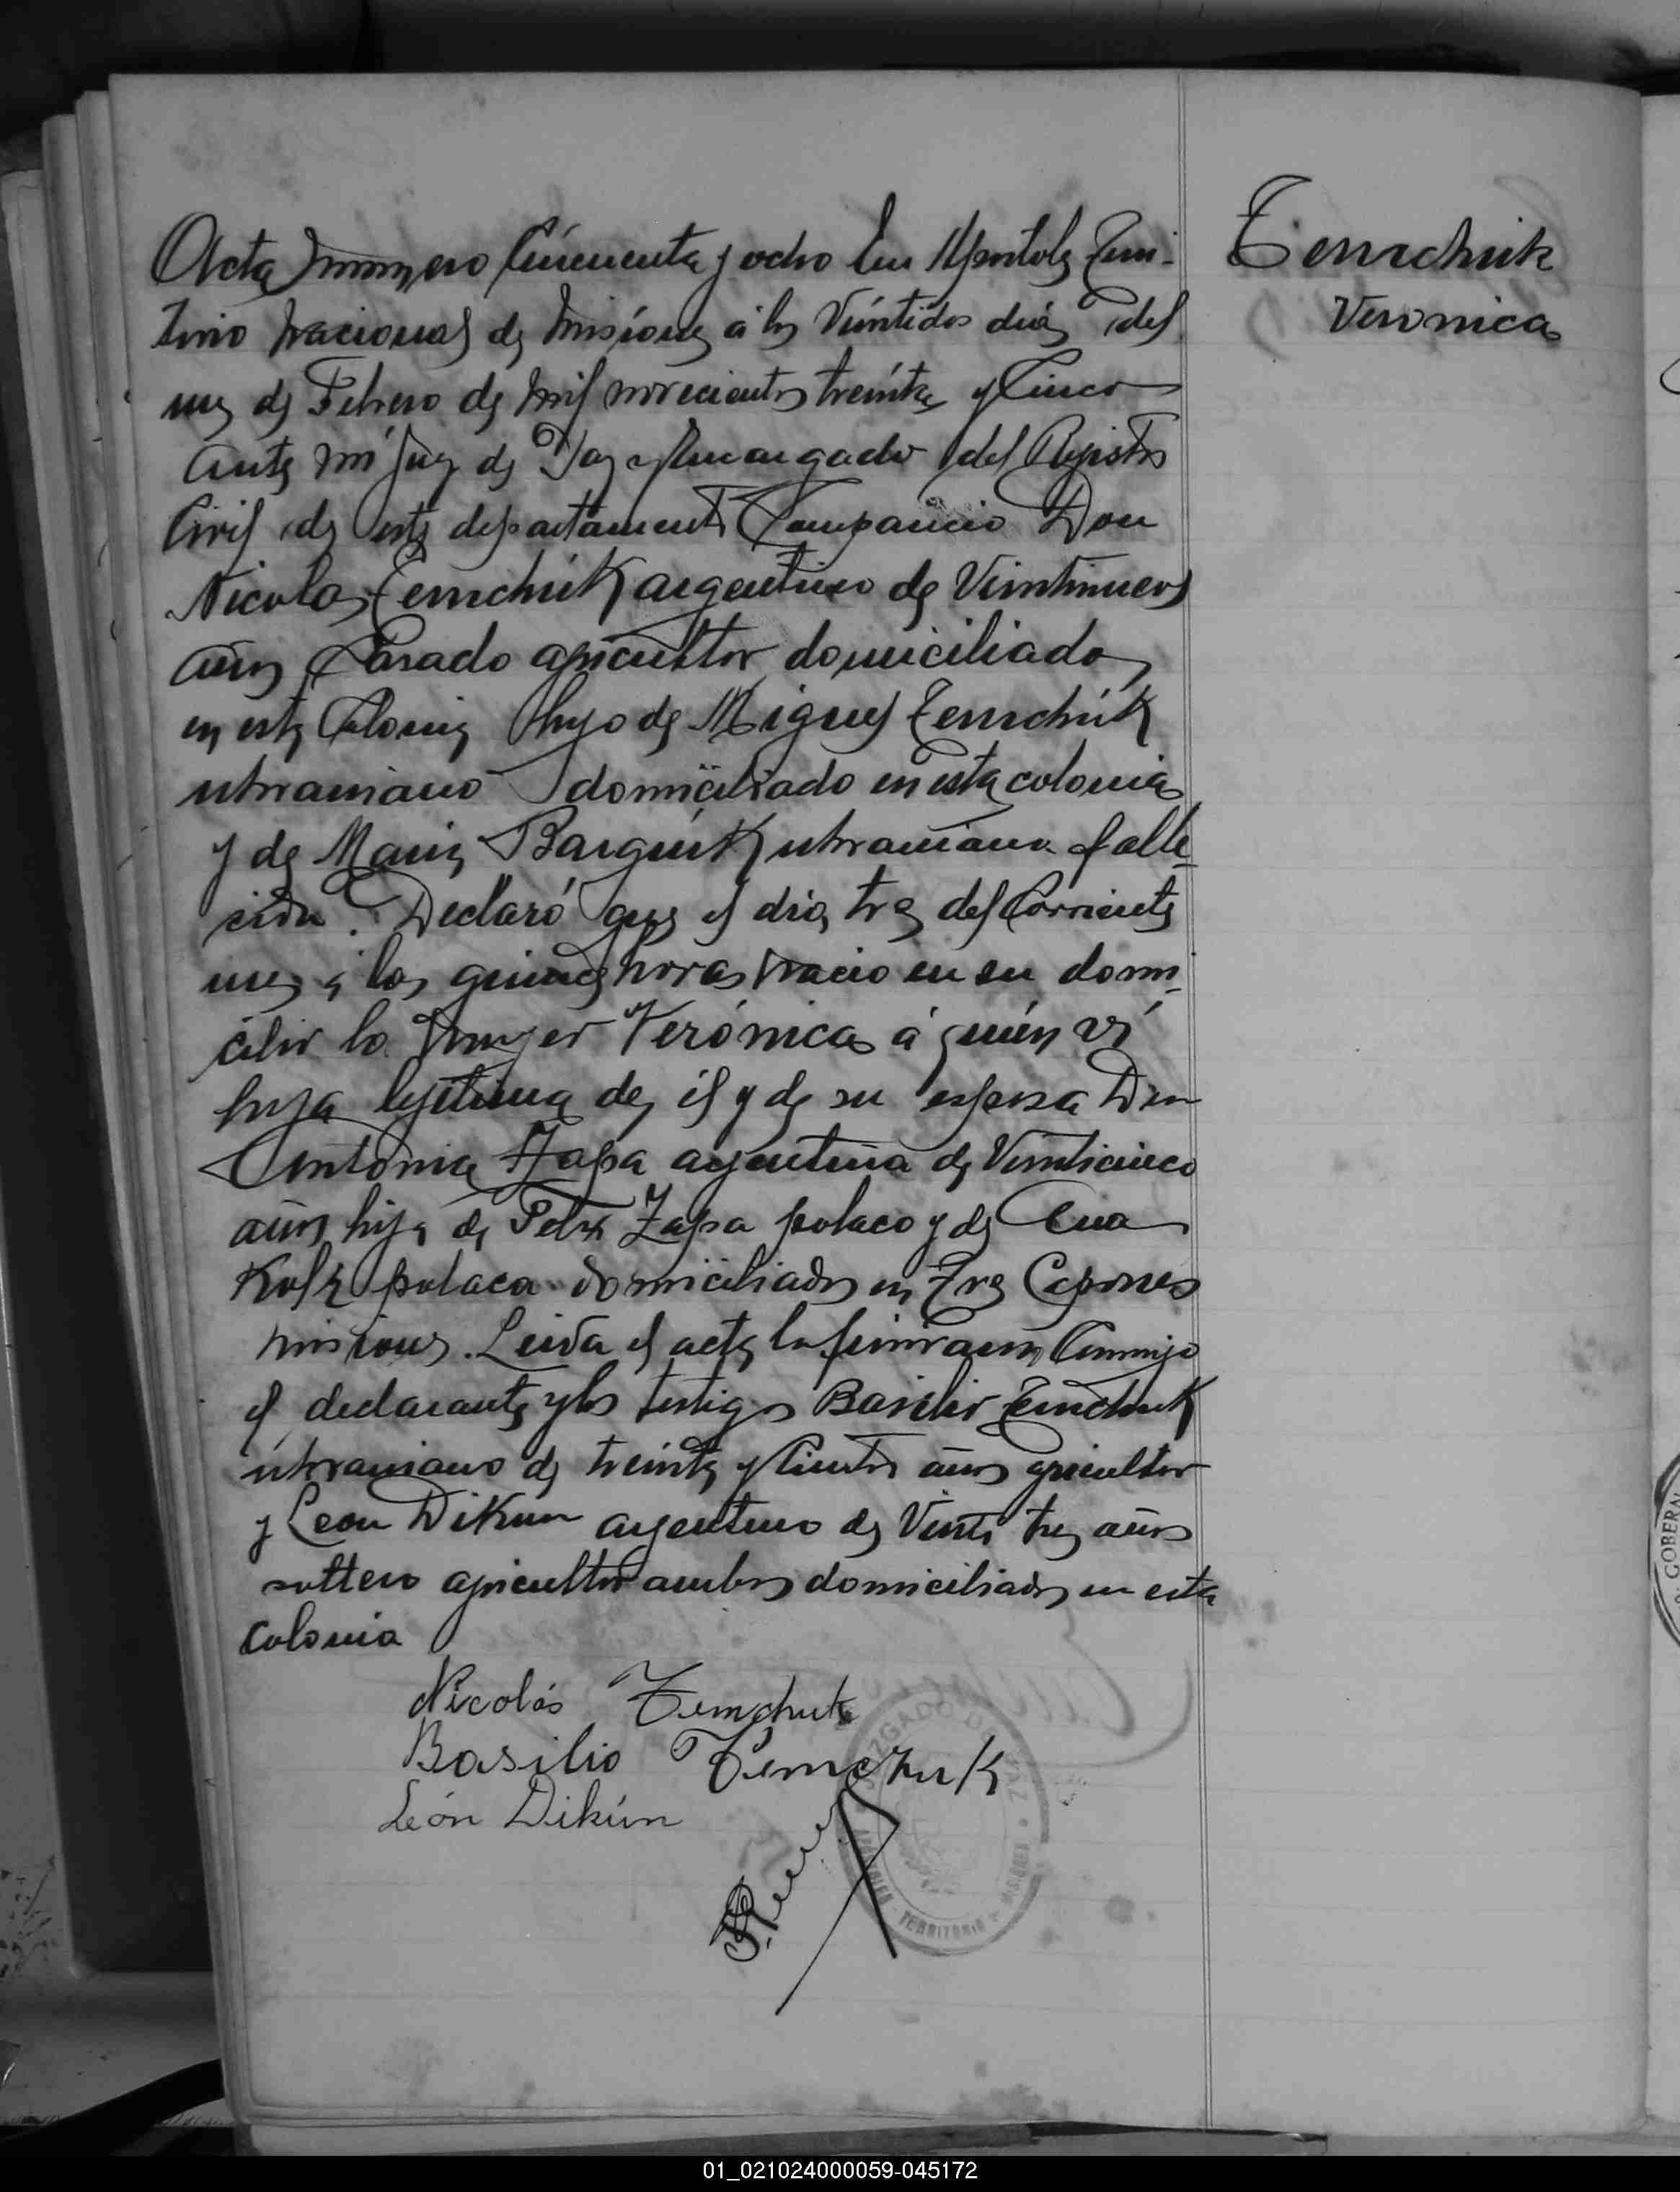 Acta Número Cincuenta y ocho En Apostoles Terri-
torio Nacional de Misiones á los Veintidos dias del
mes de Febrero de mil novecientos treinta y Cinco
Ante mí Juez de Paz y Encargado del Registro
Civil de este departamento Compareció Don
Nicolas Temchuk argentino de Veintinueve
años Casado agricultor domiciliado
en esta Colonia hijo de Miguel Temchuk
ukraniano domiciliado en esta colonia
y de Maria ukraniana falle-
cida. Declaró que el dia tres del Corriente
mes á las quince horas nacio en su domi-
cilio la mujer Verónica á quién ví
hija lejitima de él y de su esposa Doña
Antonia Zapa argentina de Veinticinco
años hija de Zapa polaco y de Ana
polaca domiciliados en Tres Capones
Misiones. Leida el acta la firmaron Conmigo
el declarante y los testigos Basilio Temchuk
ukraniano de treinta y Cuatro años agricultor
y Leon Dikun argentino de Veinti tres años
soltero agricultor ambos domiciliados en esta
colonia
Nicolás Temchuk
Basilio Temczuk
León Dikún
JUZGADO DE PAZ
APOSTOLES - TERRITORIO DE MISIONES
Temchuk
Veronica
GOBERN
01_021024000059-045172